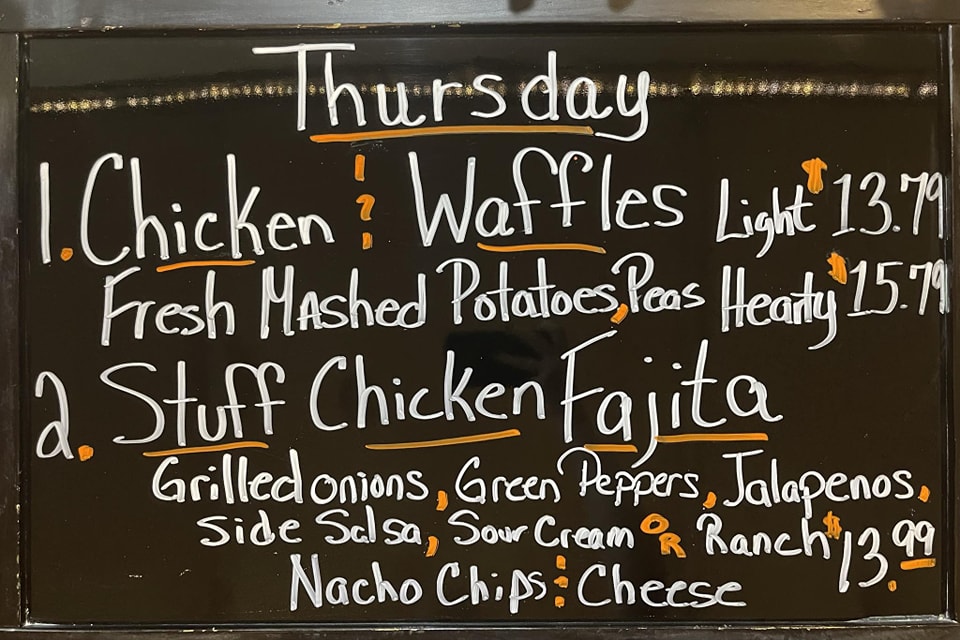 Thursday
1. Chicken & Waffles Light $13.79
Fresh Mashed Potatoes, Peas Hearty $15.79
2. Stuff Chicken Fajita
Grilled onions, Green Peppers, Jalapenos,
side Salsa, Sour Cream OR Ranch $13.99
Nacho Chips & Cheese